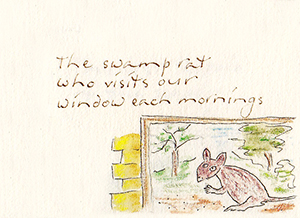 the swamp rat
who visits our
window each mornings